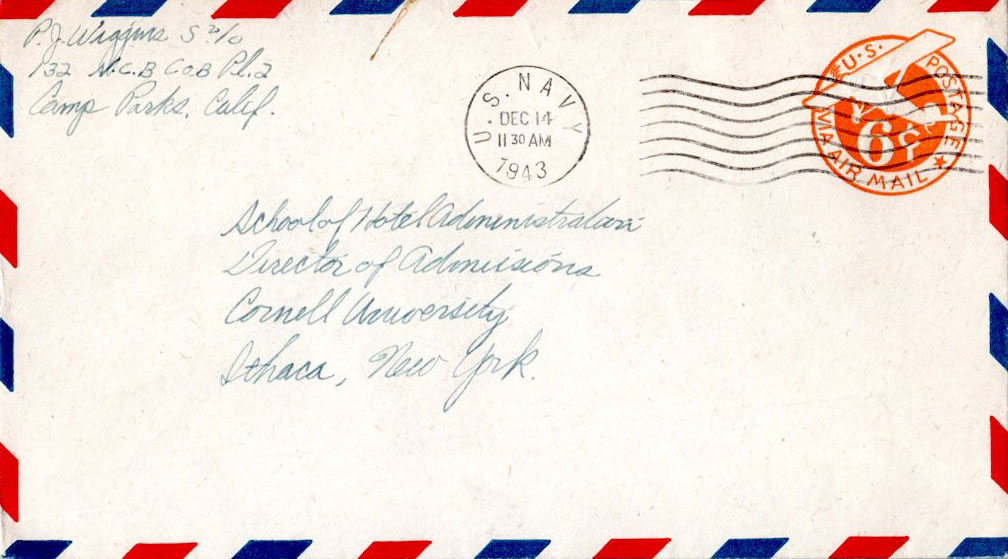 P. J. Wiggins S 2/c
132 N.C.B Co.B Pl.2
Camp Parks, Calif.
U.S. NAVY
DEC 14
11 30 AM
1943
U.S. POSTAGE
6¢
VIA AIR MAIL
School of Hotel Administration
Director of Admissions
Cornell University
Ithaca, New York.